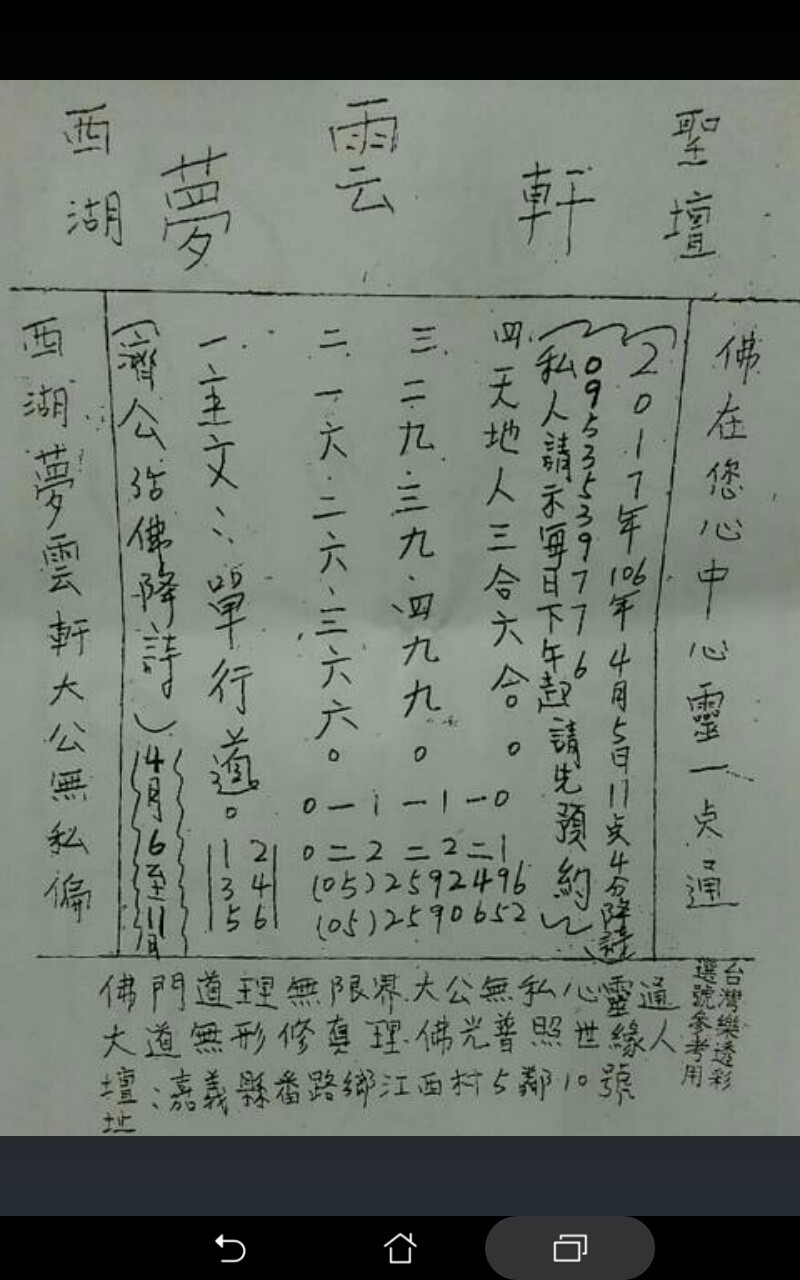 西湖
夢雲軒
聖壇
佛在您心中心靈一点通
2017年106年4月5日11点4分降詩
0953539776
私人請示每日下午起請先預約
四.天地人三合六合。
三.二九.三九.四九九。
二.一六.二六.三六六。
一.主文:單行道。
(濟公活佛降詩)
4月6至11月
西湖夢雲軒大公無私偏
0一1一1一0
0二2二2二1
1 2
3 4
5 6
(05)2592496
(05)2590652
佛門道理無限界大公無私心靈通
大道無形修真理.佛光普照世緣人
壇址:嘉義縣番路鄉江西村5鄰10號
台灣樂透彩
選號參考用